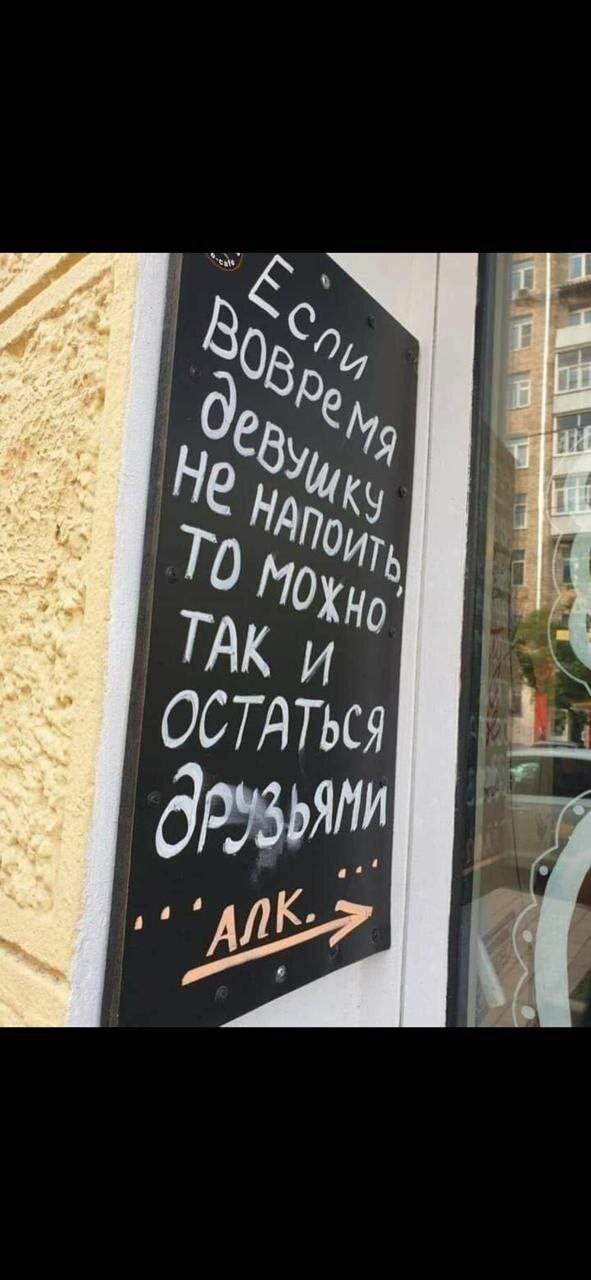 Если
вовремя
девушку
не напоить,
то можно
так и
остаться
друзьями
... АЛК. ...